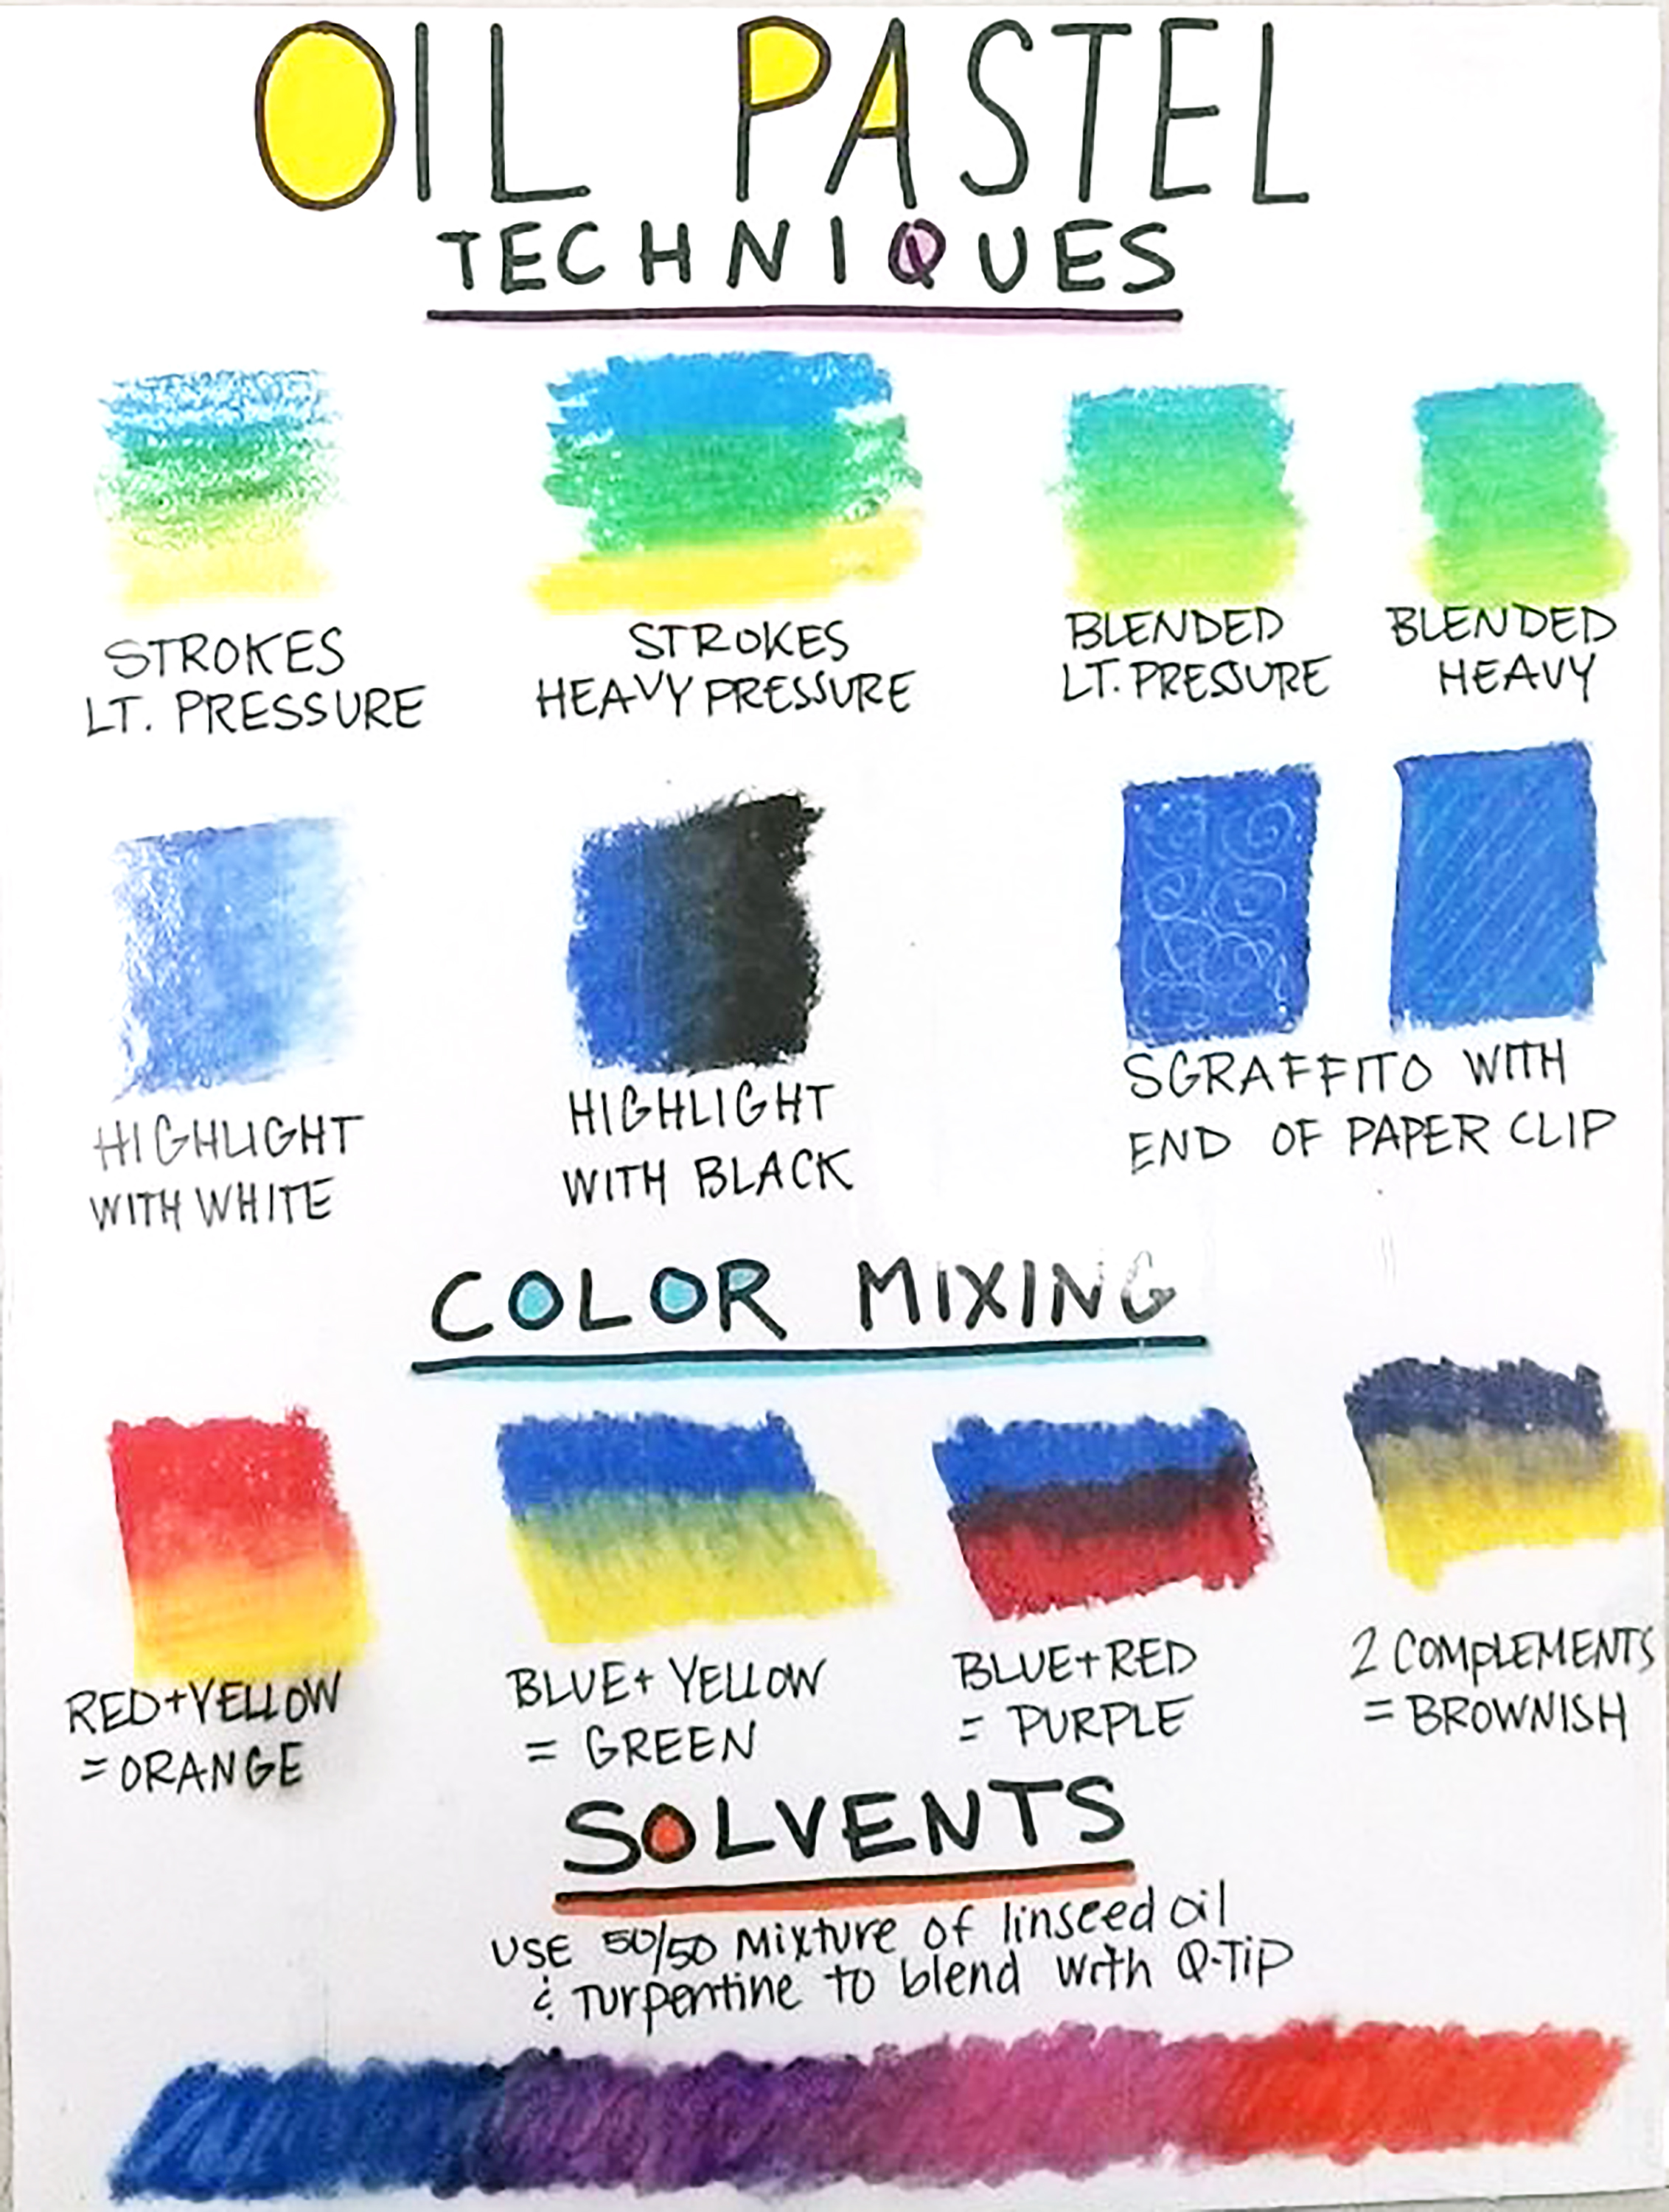 OIL PASTEL
TECHNIQUES
STROKES
LT. PRESSURE
STROKES
HEAVY PRESSURE
BLENDED
LT. PRESSURE
BLENDED
HEAVY
HIGHLIGHT
WITH WHITE
HIGHLIGHT
WITH BLACK
SGRAFFITO WITH
END OF PAPER CLIP
COLOR MIXING
RED+YELLOW
=ORANGE
BLUE+YELLOW
= GREEN
BLUE+RED
= PURPLE
2 COMPLEMENTS
= BROWNISH
SOLVENTS
USE 50/50 Mixture of linseed oil
& Turpentine to blend with Q-Tip